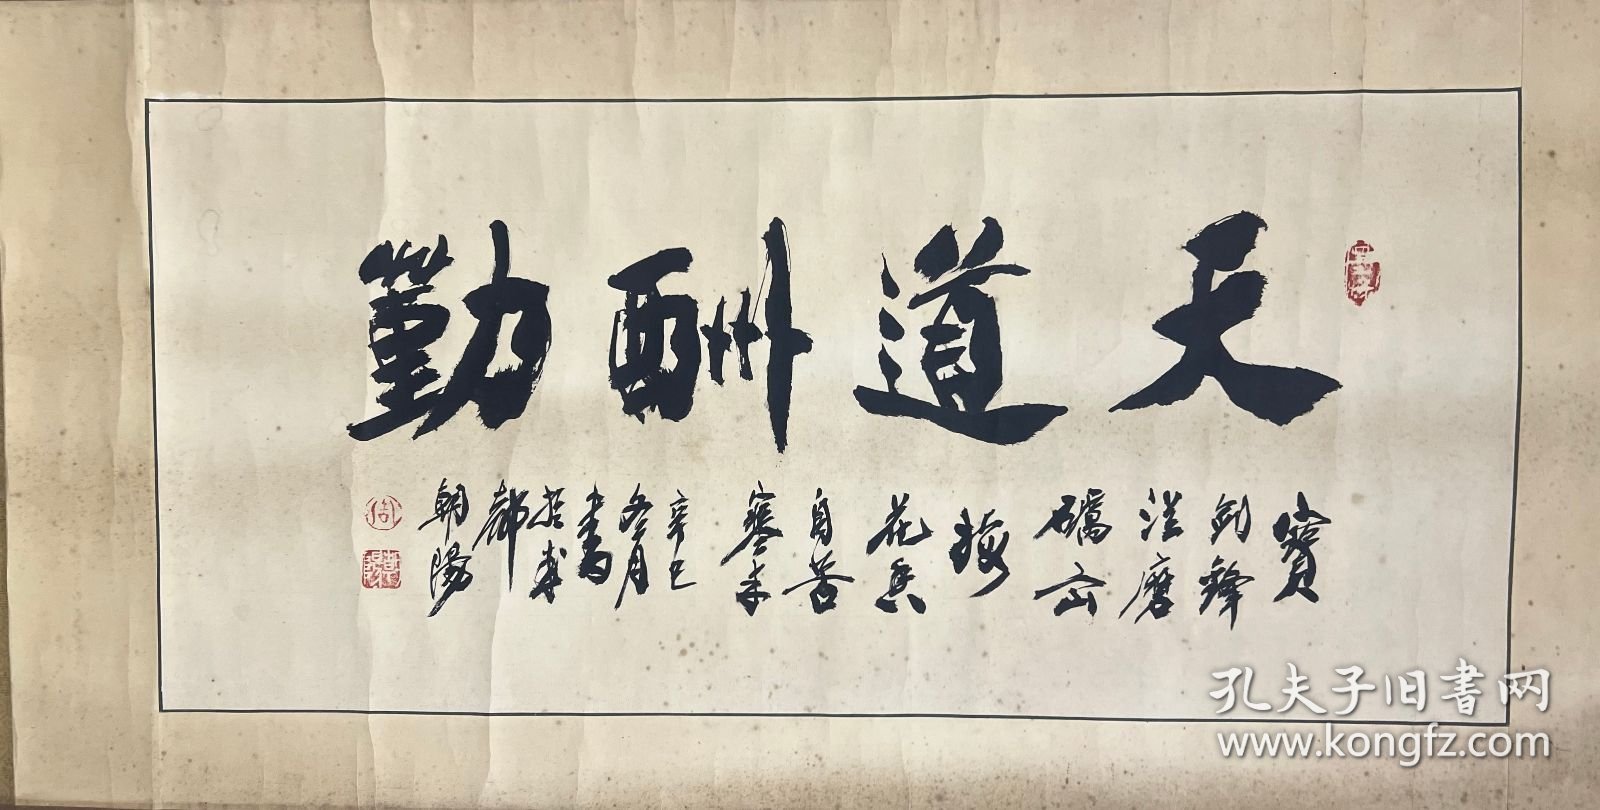 天道酬勤
寶
劍鋒
從磨
礪出
梅
花香
自苦
寒来
辛巳
冬月
書
於成
都
朝陽
周
孔夫子旧书网
www.kongfz.com